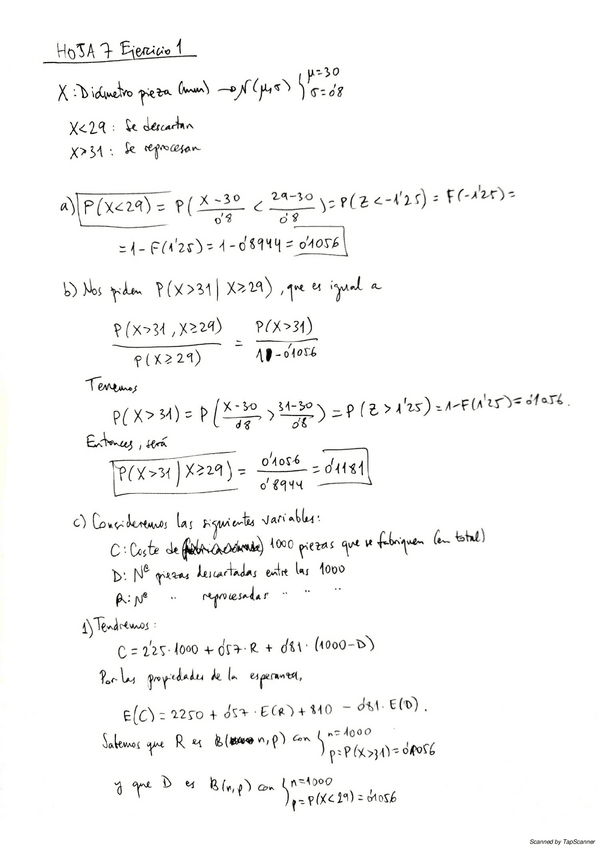 HOJA 7 Ejercicio 1
X: Diámetro pieza (mm) → N(μ,σ) { μ=30 σ=0'8
X<29: Se descartan
X>31: Se reprocesan
a) P(X<29) = P( X-30 / 0'8 < 29-30 / 0'8 ) = P(Z<-1'25) = F(-1'25) =
= 1-F(1'25) = 1-0'8944 = 0'1056
b) Nos piden P(X>31 | X≥29), que es igual a
P(X>31, X≥29) / P(X≥29) = P(X>31) / 1-0'1056
Tenemos
P(X>31) = P( X-30 / 0'8 > 31-30 / 0'8 ) = P(Z>1'25) = 1-F(1'25) = 0'1056.
Entonces, será
P(X>31 | X≥29) = 0'1056 / 0'8944 = 0'1181
c) Consideremos las siguientes variables:
C: Coste de 1000 piezas que se fabriquen (en total)
D: Nº piezas descartadas entre las 1000
R: Nº " reprocesadas " " "
1) Tendremos:
C = 2'25·1000 + 0'57·R + 0'81·(1000-D)
Por las propiedades de la esperanza,
E(C) = 2250 + 0'57·E(R) + 810 - 0'81·E(D).
Sabemos que R es B(n,p) con { n=1000 p=P(X>31)=0'1056
y que D es B(n,p) con { n=1000 p=P(X<29)=0'1056
Scanned by TapScanner